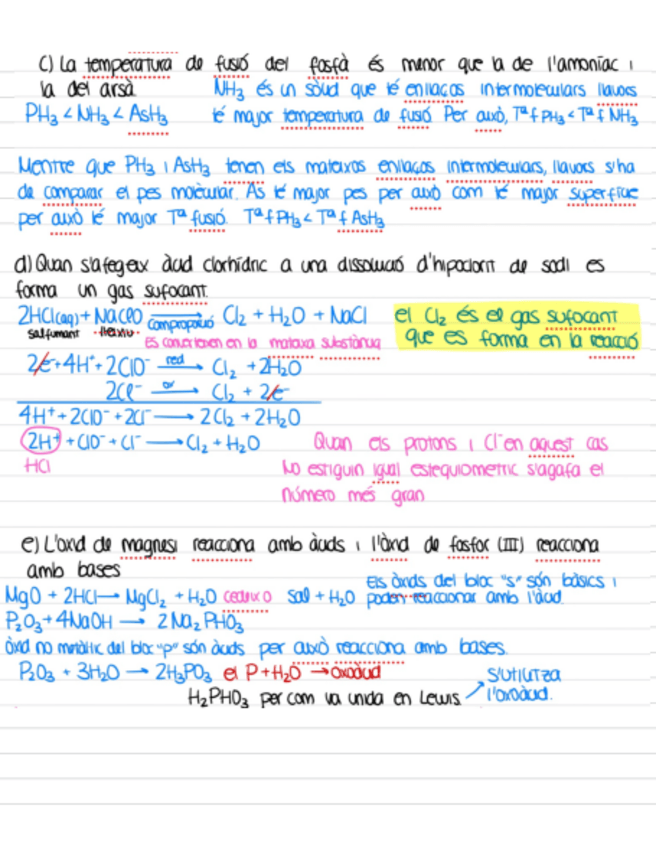 c) La temperatura de fusió del fosfà és menor que la de l'amoníac i
la del arsà. NH₃ és un sòlid que té enllaços intermoleculars llavors
PH₃ < NH₃ < AsH₃ té major temperatura de fusió. Per això, Tª f PH₃ < Tª f NH₃
Mentre que PH₃ i AsH₃ tenen els mateixos enllaços intermoleculars, llavors s'ha
de comparar el pes molècular. As té major pes per això com té major superfície
per això té major Tª fusió. Tª f PH₃ < Tª f AsH₃
d) Quan s'afegeix àcid clorhídric a una dissolució d'hipoclorit de sodi es
forma un gas sufocant.
2HCl(aq) + NaClO ⟶ Cl₂ + H₂O + NaCl el Cl₂ és el gas sufocant
salfumant lleixiu comproporció que es forma en la reacció
Es converteixen en la mateixa substància
2e⁻ + 4H⁺ + 2ClO⁻ red ⟶ Cl₂ + 2H₂O
2Cl⁻ ox ⟶ Cl₂ + 2e⁻
4H⁺ + 2ClO⁻ + 2Cl⁻ ⟶ 2Cl₂ + 2H₂O
2H⁺ + ClO⁻ + Cl⁻ ⟶ Cl₂ + H₂O Quan els protons i Cl⁻ en aquest cas
HCl No estiguin igual estequiometric s'agafa el
número més gran
e) L'òxid de magnesi reacciona amb àcids i l'òxid de fosfor (III) reacciona
amb bases
Els òxids del bloc "s" són bàsics i
MgO + 2HCl ⟶ MgCl₂ + H₂O sal + H₂O poden reaccionar amb l'àcid.
P₂O₃ + 4NaOH ⟶ 2Na₂PHO₃
òxid no metàl·lic del bloc "p" són àcids per això reacciona amb bases.
P₂O₃ + 3H₂O ⟶ 2H₃PO₃ el P + H₂O → oxoàcid s'utilitza
H₂PHO₃ per com va unida en Lewis l'oxoàcid.